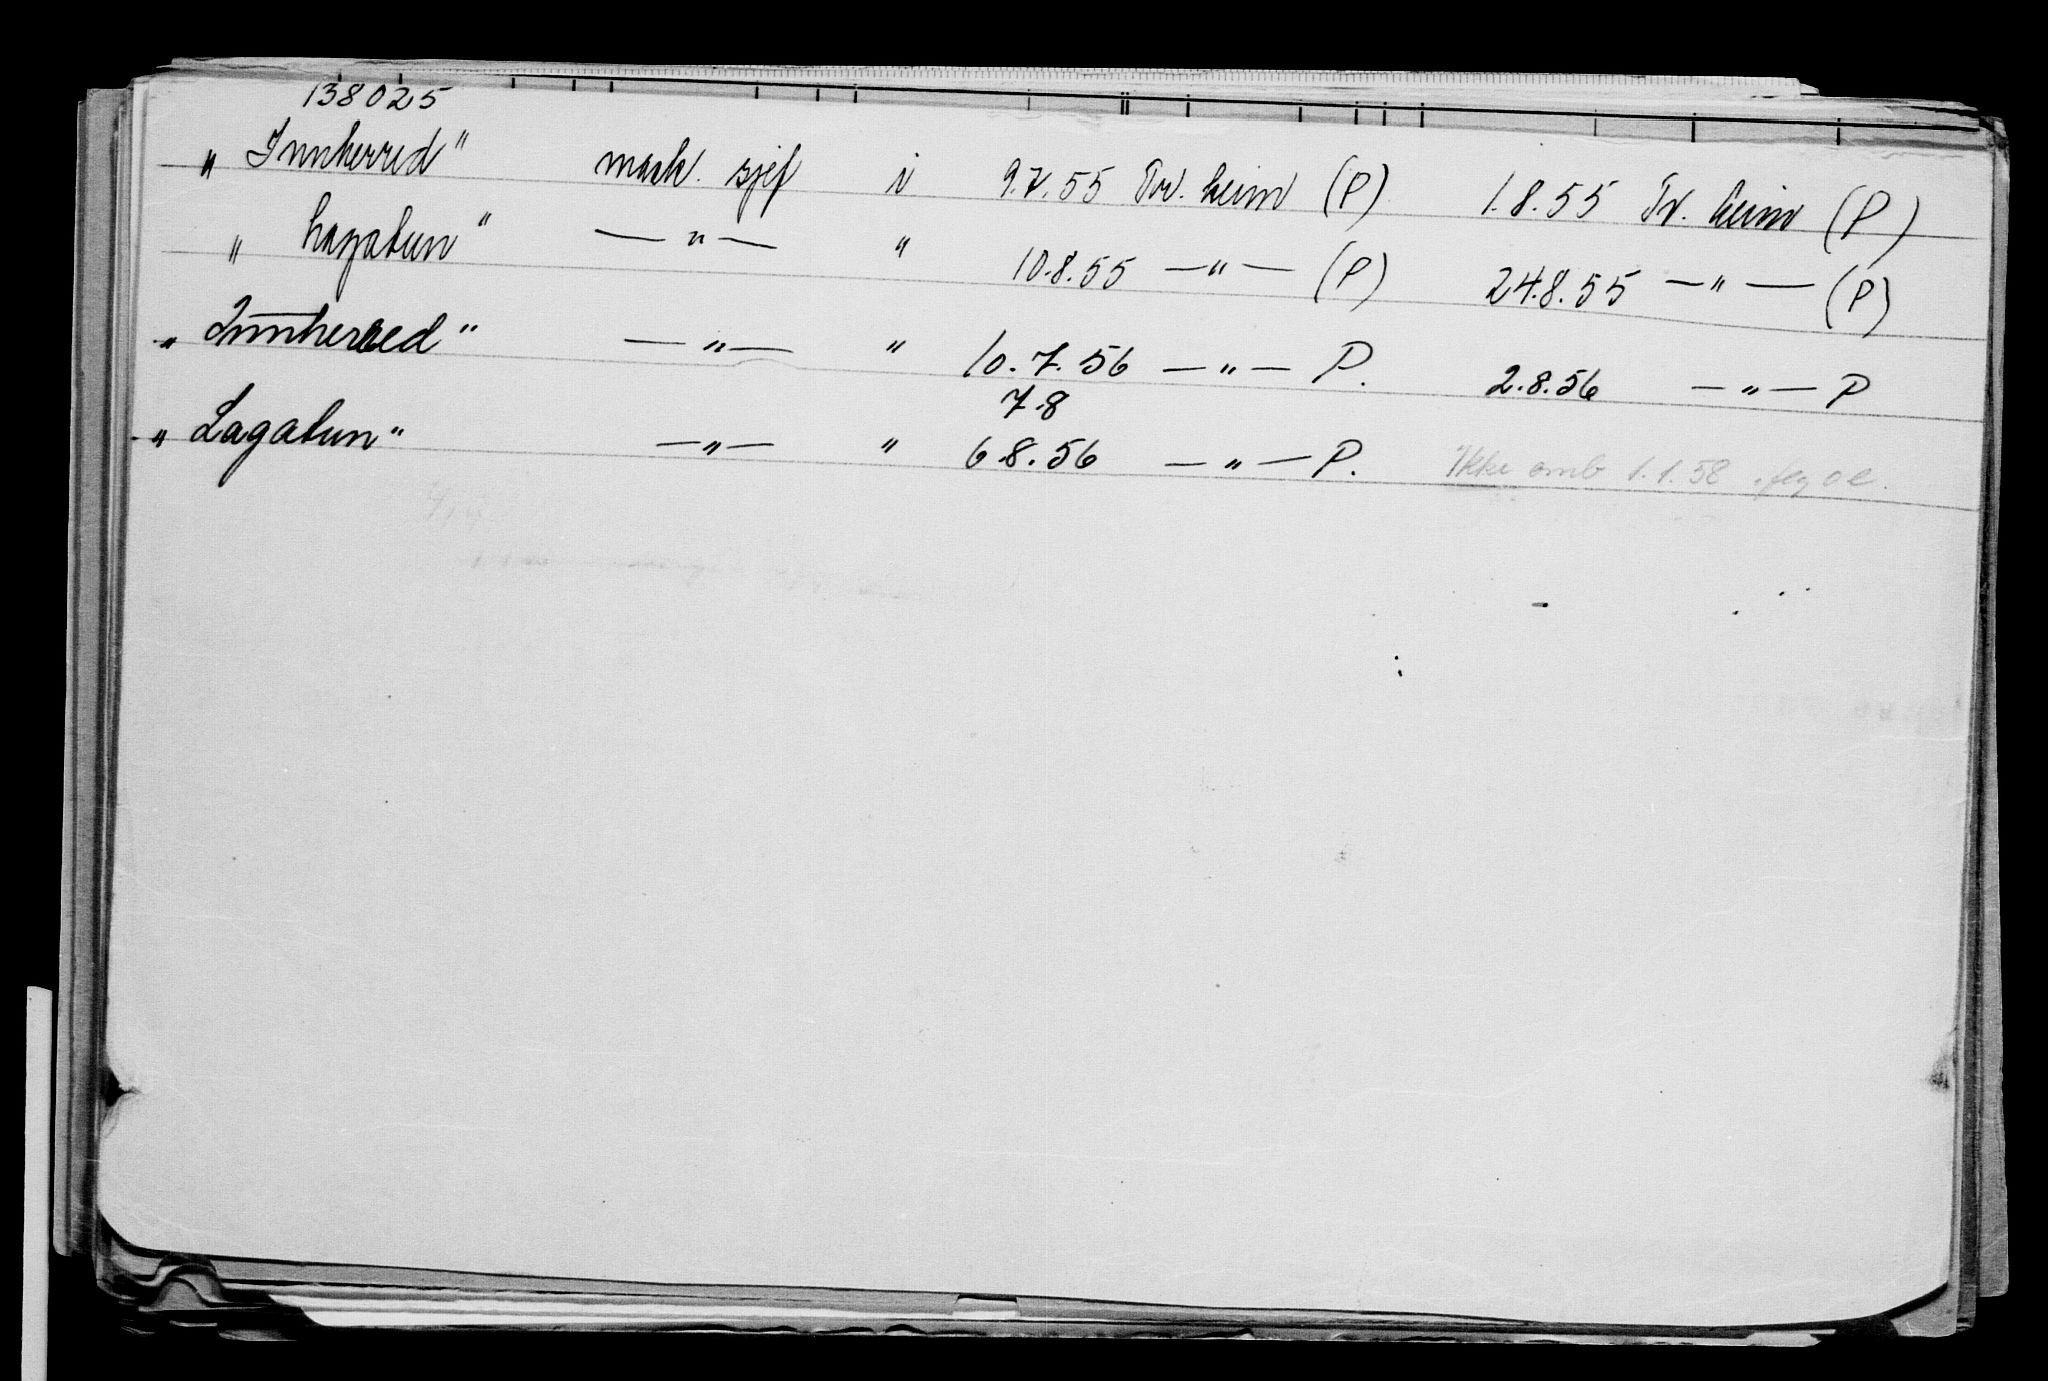 138025
„ Innherred" mask. sjef i 9.7.55 Tr. heim (P) 1.8.55 Tr. heim (P)
„ Lagatun" — „ — " 10.8.55 — „ — (P) 24.8.55 — „ — (P)
„ Innherred" — „ — " 10.7.56 — „ — P. 2.8.56 — „ — P
7.8
„ Lagatun" — „ — " 6.8.56 — „ — P. Ikke omb 1.1.58